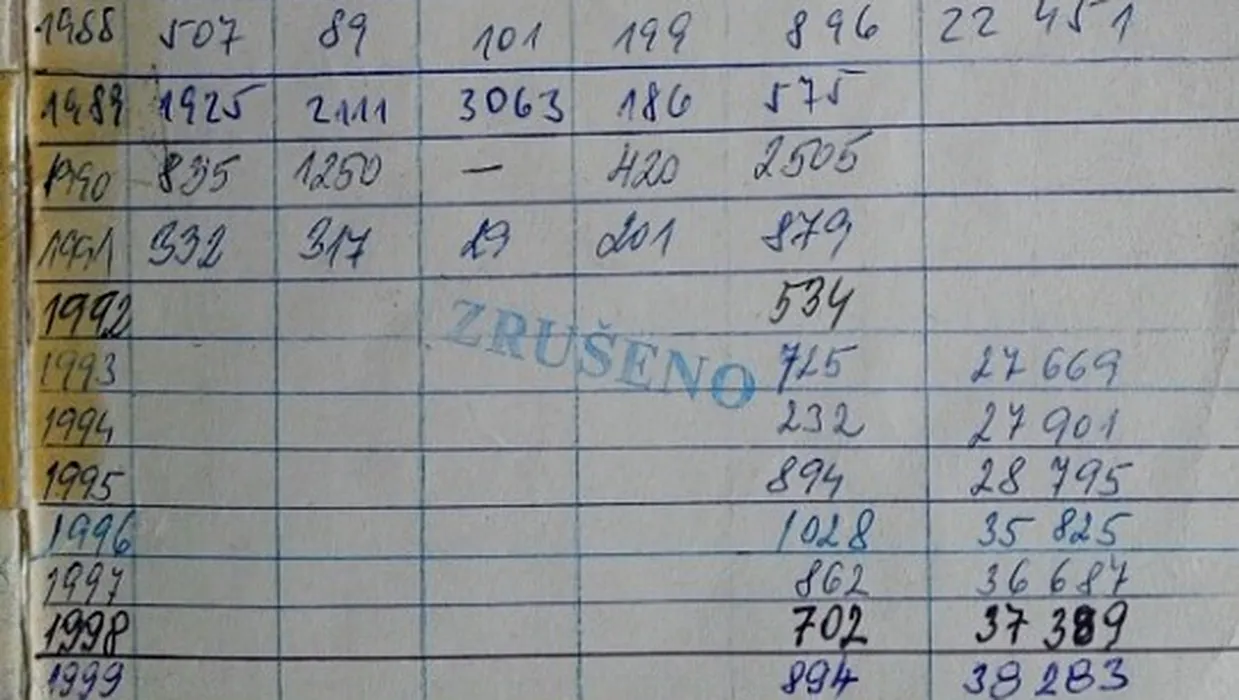 1988 507 89 101 199 896 22 451
1989 1925 2111 3063 186 575
1990 835 1250 — 420 2505
1991 332 317 29 201 879
1992 534
ZRUŠENO
1993 725 27 669
1994 232 27 901
1995 894 28 795
1996 1028 35 825
1997 862 36 687
1998 702 37 389
1999 894 38 283